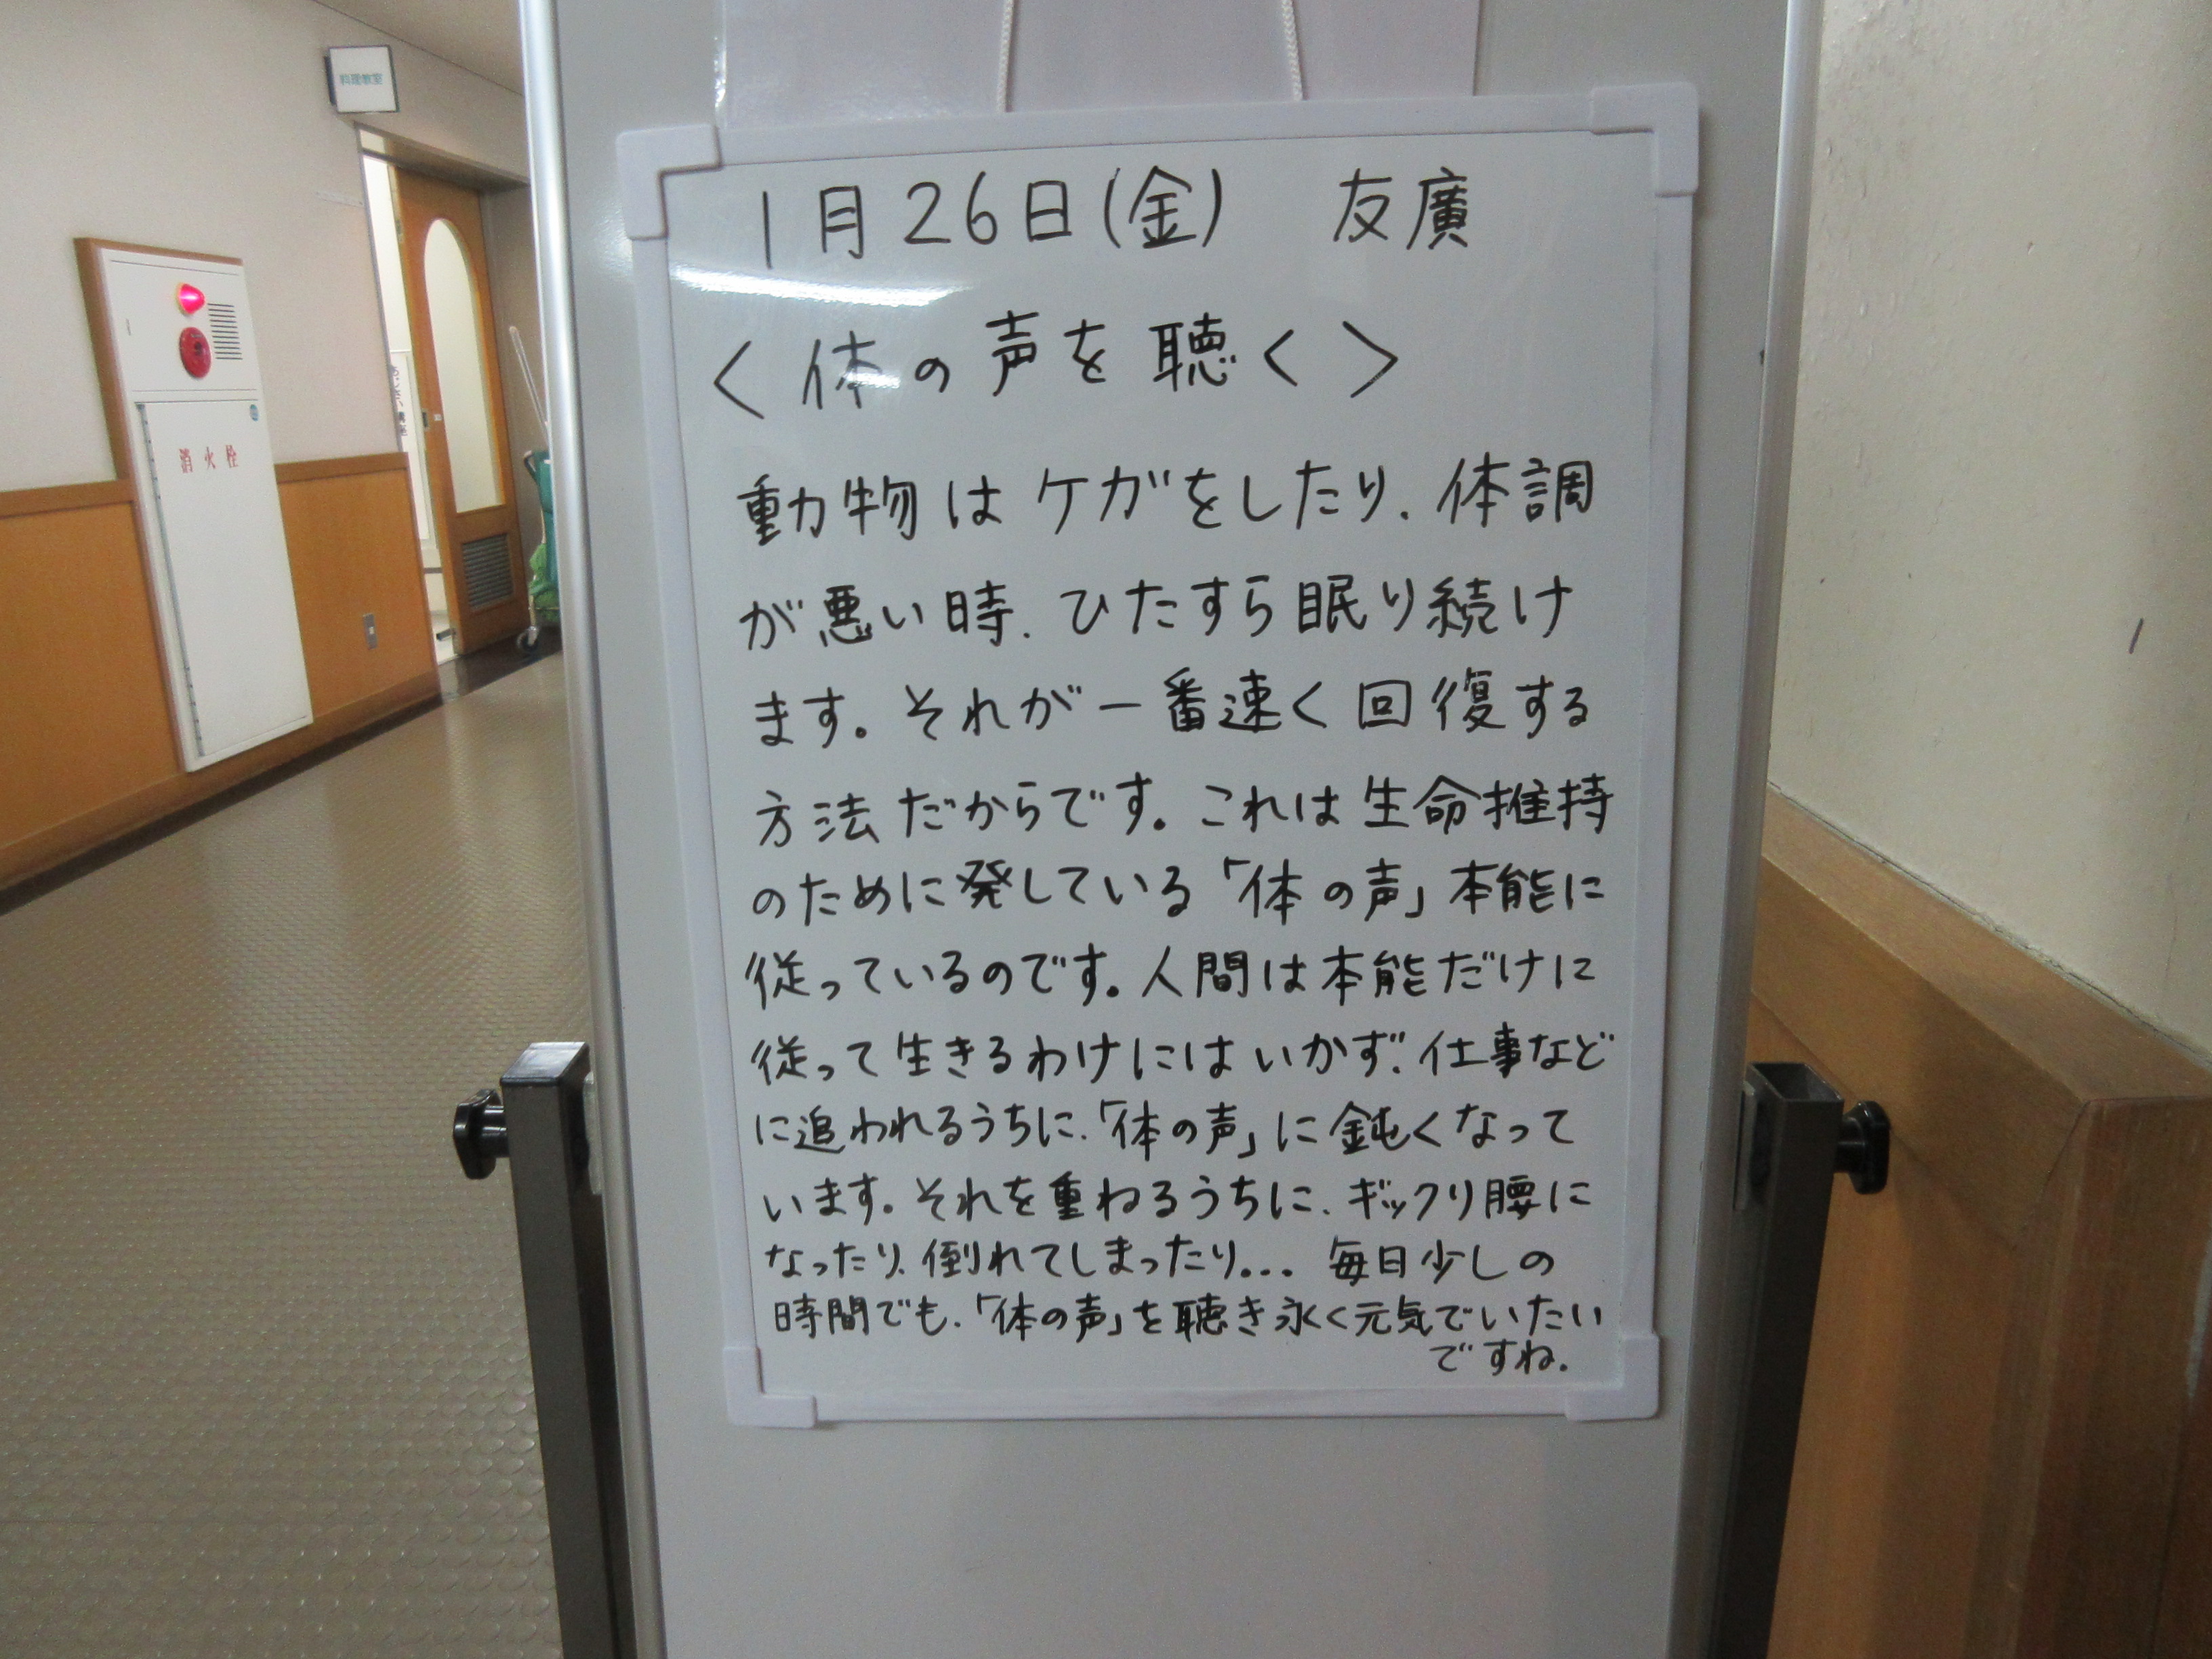 料理教室
消火栓
1月26日(金) 友廣
<体の声を聴く>
動物はケガをしたり、体調
が悪い時、ひたすら眠り続け
ます。それが一番速く回復する
方法だからです。これは生命推持
のために発している「体の声」本能に
従っているのです。人間は本能だけに
従って生きるわけにはいかず、仕事など
に追われるうちに、「体の声」に鈍くなって
います。それを重ねるうちに、ギックリ腰に
なったり、倒れてしまったり... 毎日少しの
時間でも、「体の声」を聴き永く元気でいたい
ですね。